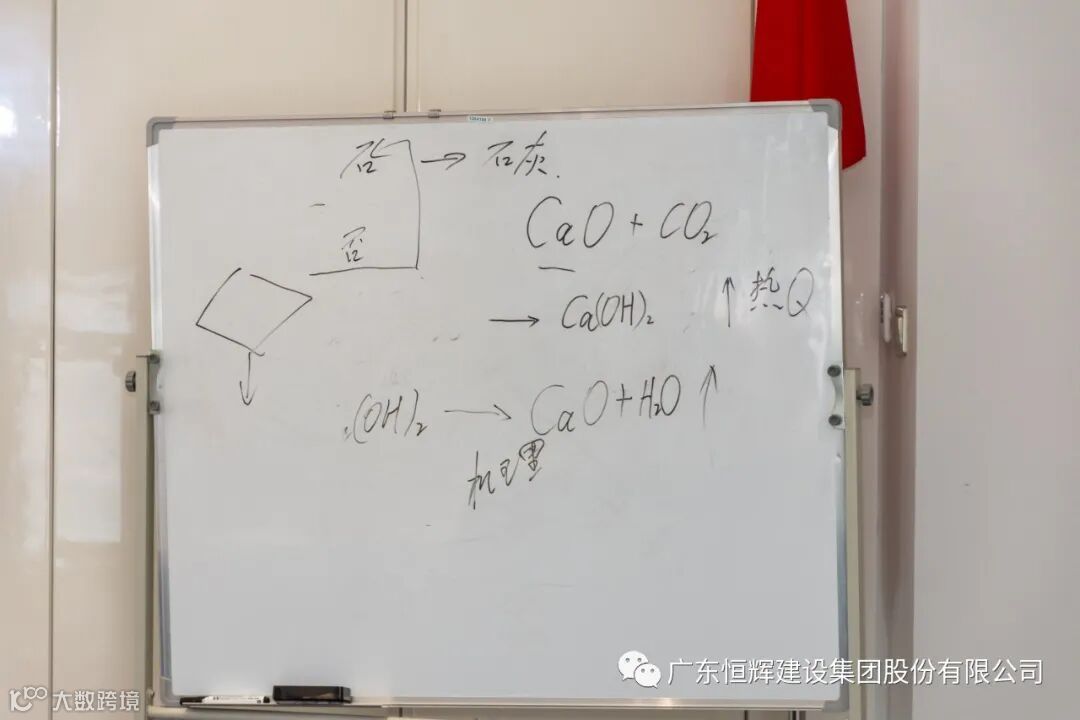 否 → 石灰.
否
CaO + CO₂
→ Ca(OH)₂ ↑ 热Q
(OH)₂ → CaO + H₂O ↑
机理
广东恒辉建设集团股份有限公司
大数跨境